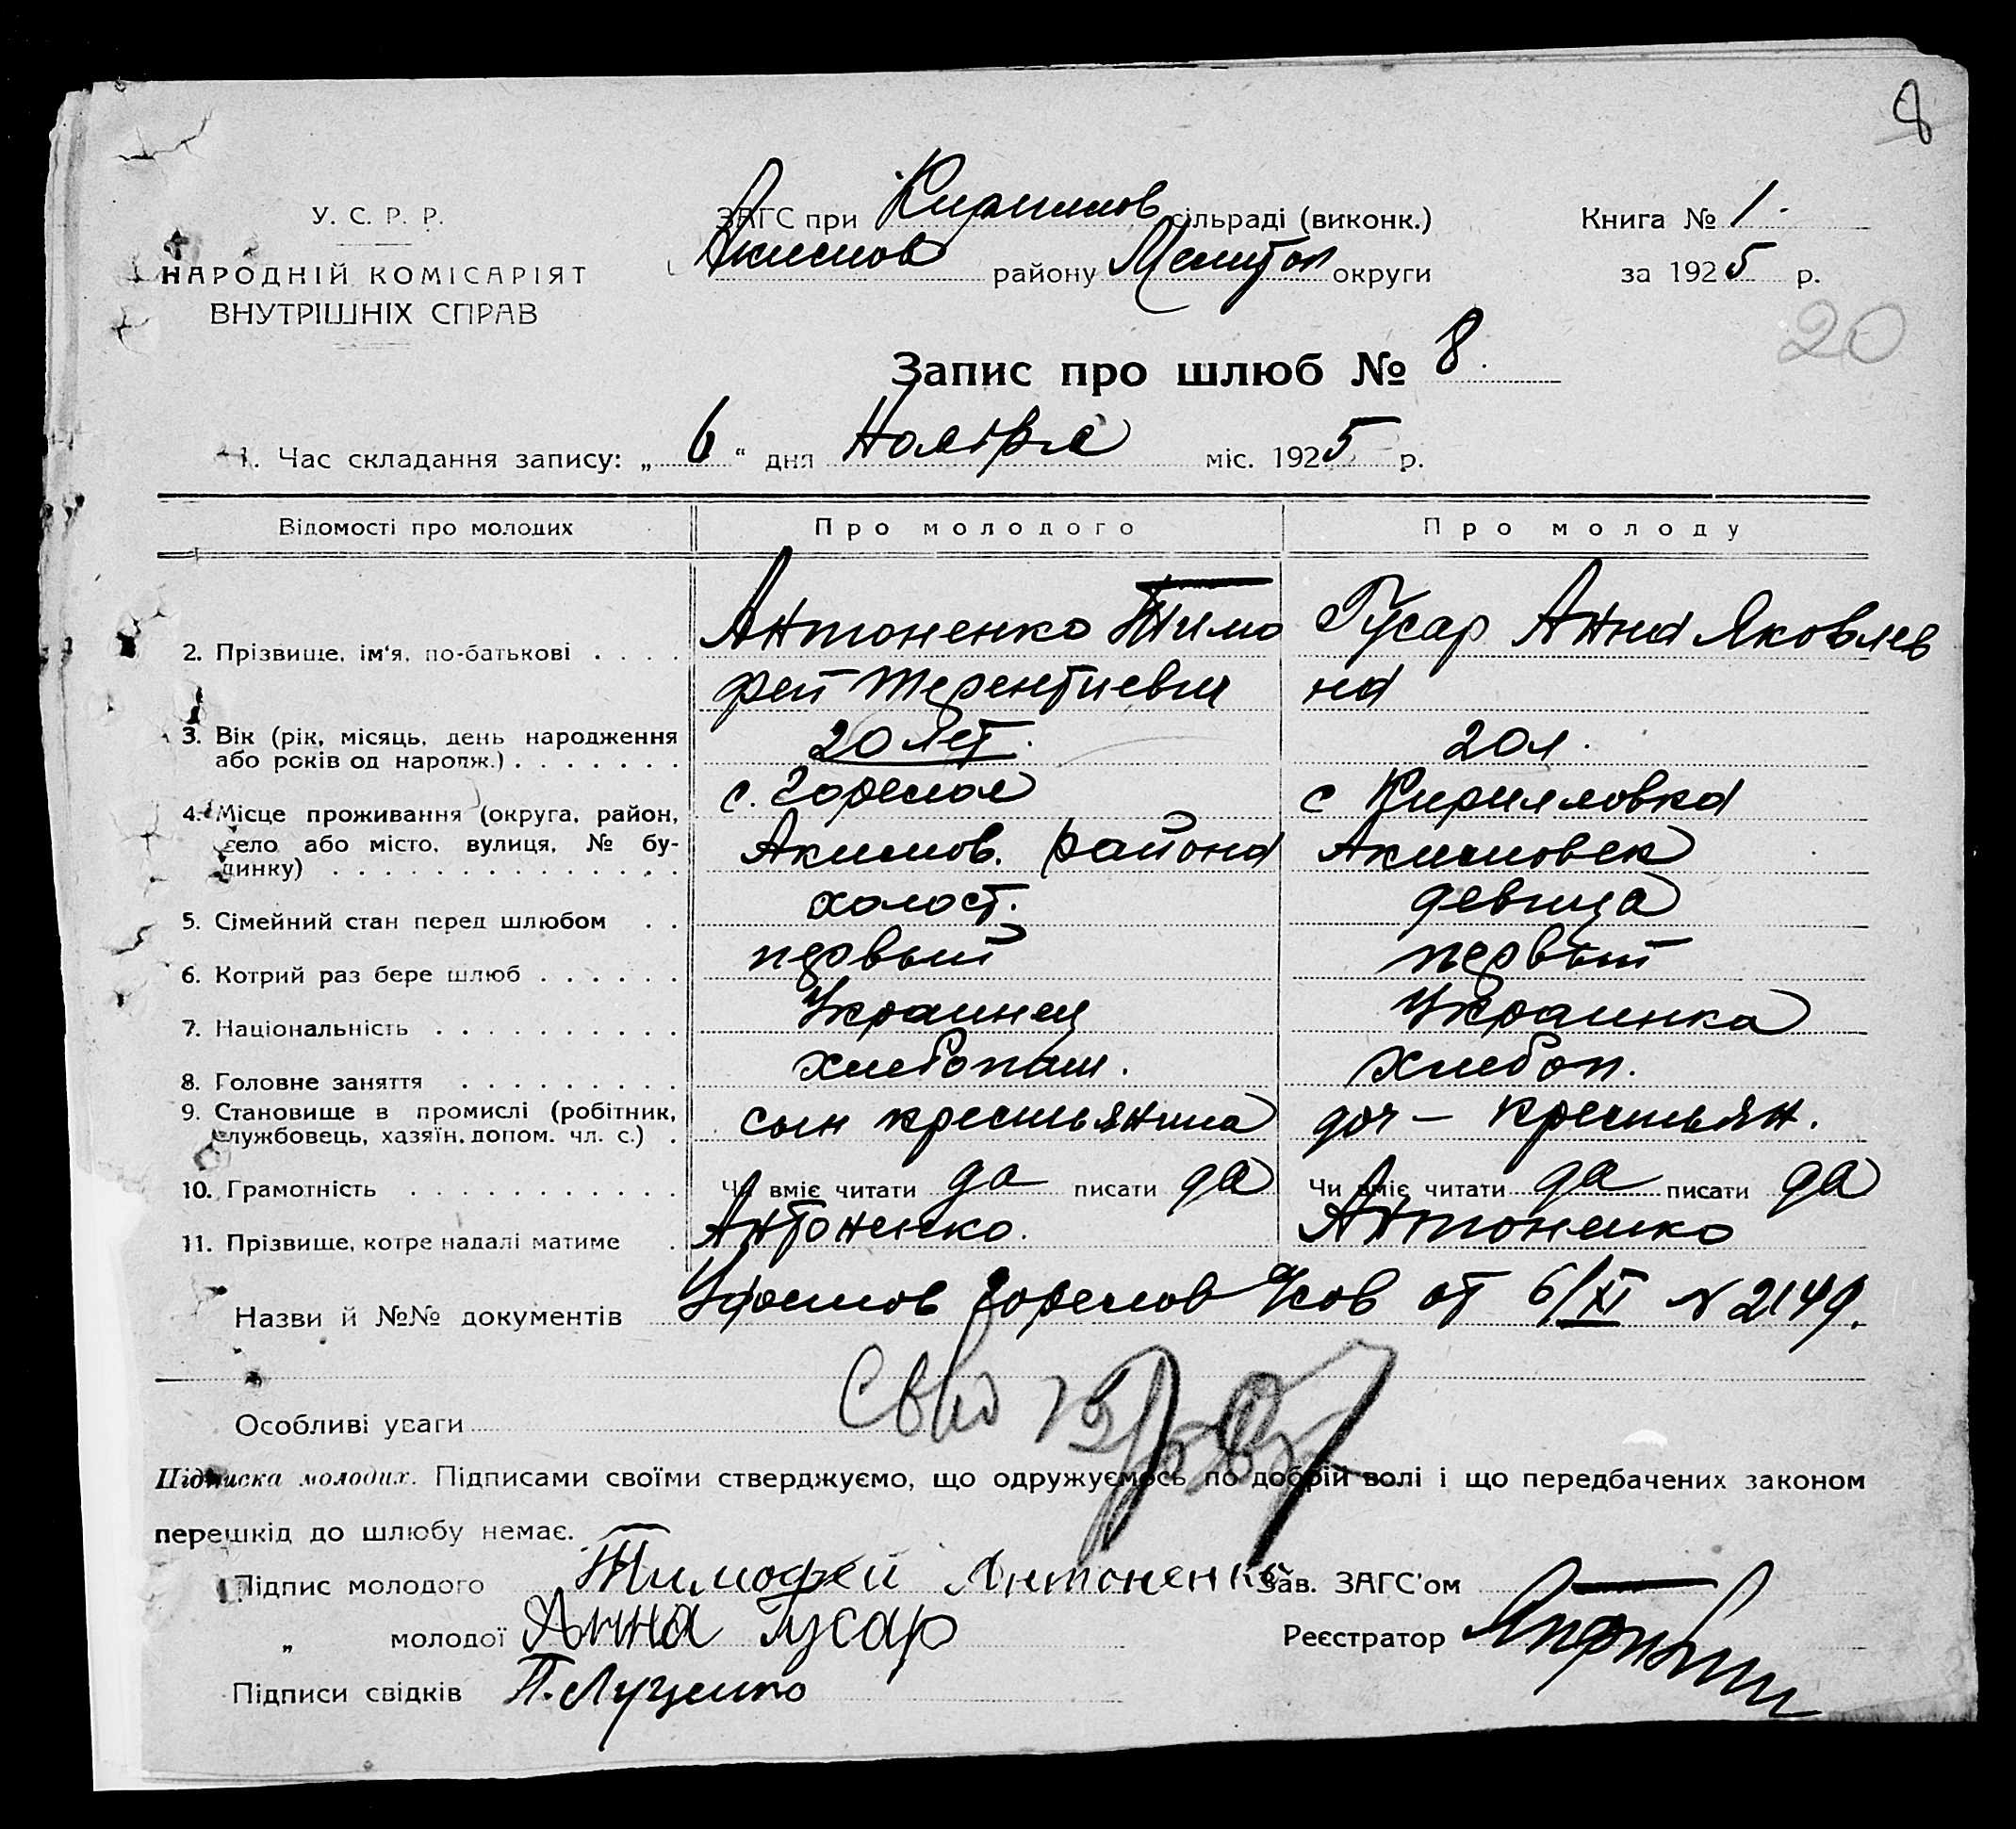 8
У. С. Р. Р.
НАРОДНІЙ КОМІСАРІЯТ
ВНУТРІШНІХ СПРАВ
ЗАГС при Кирилов сільраді (виконк.)
Акимов району Мелитоп округи
Книга № 1.
за 1925 р.
20
Запис про шлюб № 8.
1. Час складання запису: „ 6 “ дня Ноября міс. 1925 р.
Відомості про молодих
Про молодого
Про молоду
2. Прізвище, ім'я, по-батькові . . . .
Антоненко Тимо
фей Терентиевич
Гусар Анна Яковлев
на
3. Вік (рік, місяць, день народження
або років од народж.) . . . . . . .
20 лет.
20 л.
4. Місце проживання (округа, район,
село або місто, вулиця, № бу-
динку) . . . . . . . . . . . . . .
с. Горелое
Акимов. района
с Кирилловка
Акимовск
5. Сімейний стан перед шлюбом . .
холост.
девица
6. Котрий раз бере шлюб . . . . . .
первый
первый
7. Національність . . . . . . . . . .
Украинец
Украинка
8. Головне заняття . . . . . . . . .
хлебопаш.
хлебоп.
9. Становище в промислі (робітник,
службовець, хазяїн, допом. чл. с.) .
сын крестьянина
доч - крестьян.
10. Грамотність . . . . . . . . . . .
Чи вміє читати да писати да
Чи вміє читати да писати да
11. Прізвище, котре надалі матиме .
Антоненко.
Антоненко
Назви й №№ документів
Удостов Горелов от 6/XI № 2149.
Особливі уваги
Підписка молодих. Підписами своїми стверджуємо, що одружуємось по добрій волі і що передбачених законом
перешкід до шлюбу немає.
Підпис молодого Тимофей Антоненко
Зав. ЗАГС'ом
„ молодої Анна Гусар
Реєстратор
Підписи свідків П. Луценко